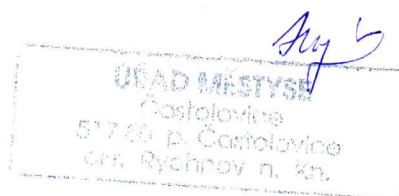 ÚŘAD MĚSTYSE
Častolovice
517 50 p. Častolovice
okr. Rychnov n. Kn.